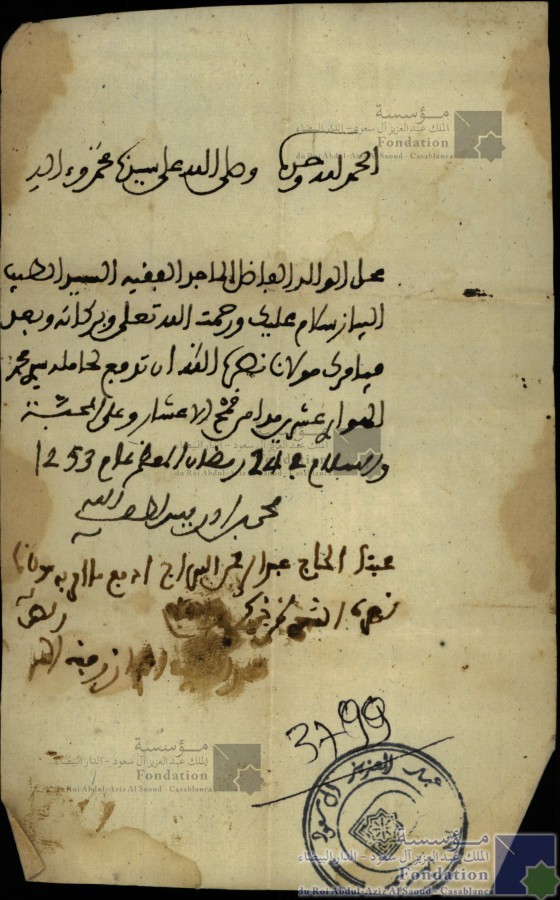 الحمد لله وحده وصلى الله على سيدنا محمد وءاله
محل الوالد الفاضل الماجد الفقيه السيد الطيب
البياز سلام عليك ورحمت الله تعلى وبركاته وبعد
فيامرك مولانا نصره الله ان تدفع لحامله سي محمد
الهواري عشرين مدا من قمح الاعشار وعلى المحبة
والسلام في 24 رمضان المعظم عام 1253
محمد بن ادريس لطف الله به
الحاج عبد الرحمن ادفع ما امر به مولانا
نصره
3799
عبد العزيز آل سعود
مؤسسة
الملك عبد العزيز آل سعود - الدار البيضاء
Fondation
du Roi Abdul-Aziz Al Saoud - Casablanca